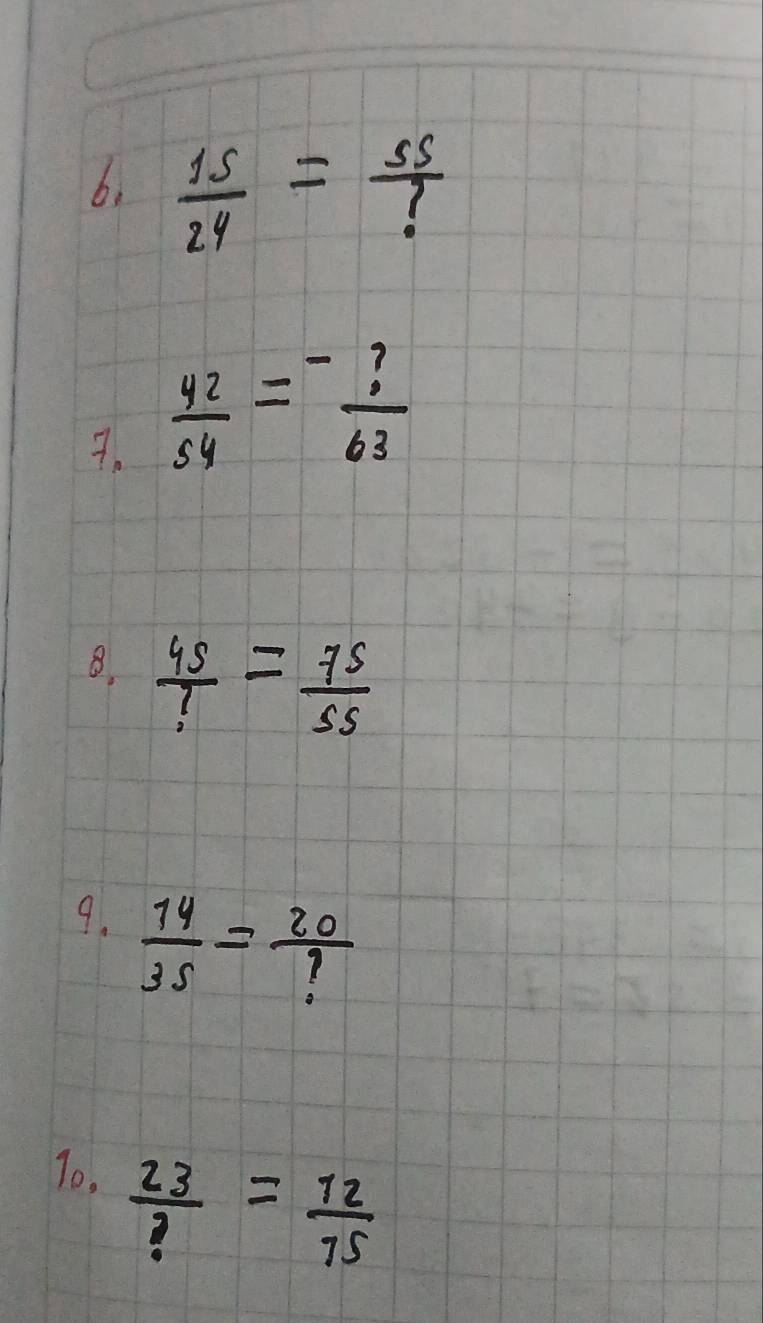 6. 15/24 = 55/?
7. 42/54 = - ?/63
8. 45/? = 75/55
9. 14/35 = 20/?
10. 23/? = 12/15